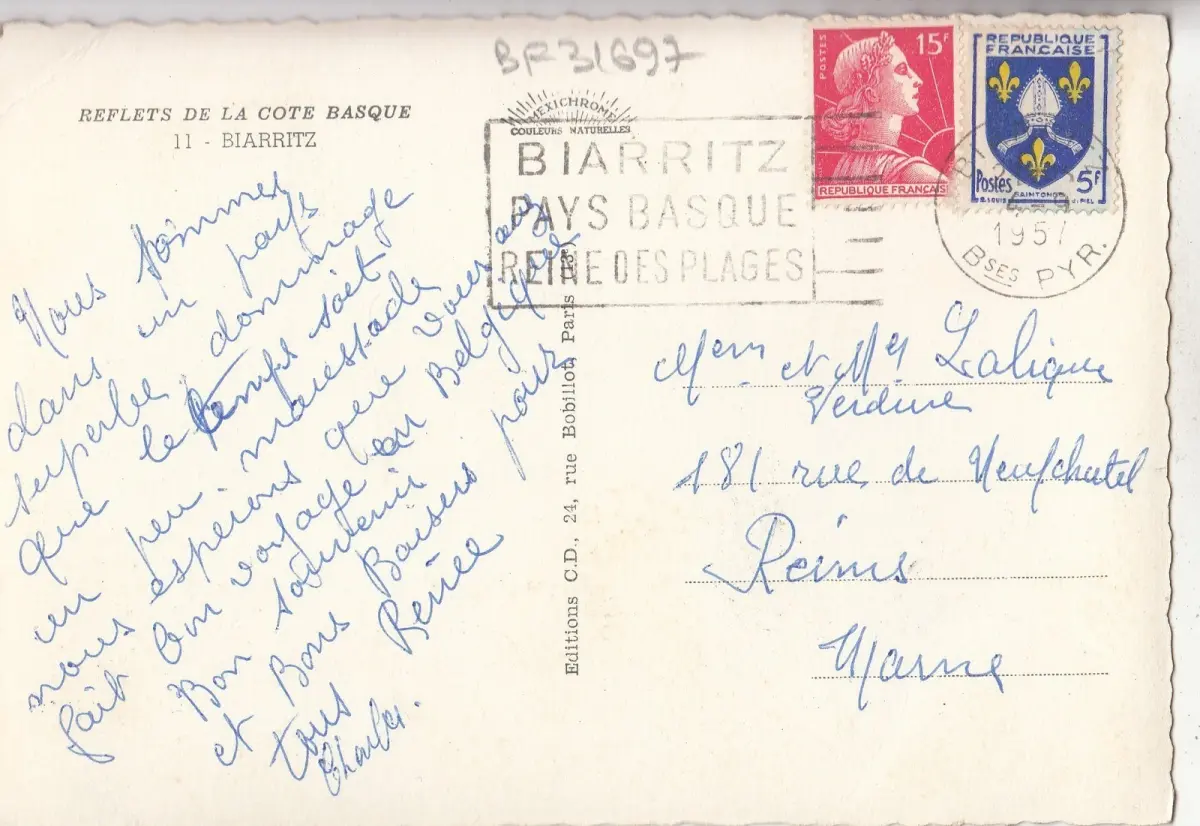 BF31697
REFLETS DE LA COTE BASQUE
11 - BIARRITZ
MEXICHROME
COULEURS NATURELLES
BIARRITZ
PAYS BASQUE
REINE DES PLAGES
POSTES
15F
REPUBLIQUE FRANÇAISE
REPUBLIQUE
FRANÇAISE
Postes
5F
SAINTONGE
1957
BSES PYR.
Nous sommes
dans un pays
superbe dommage
que le temps soit
un peu maussade
nous esperions que vous avez
fait bon voyage en Belgique
Bon souvenir
et Bons Baisers pour
tous Renée
Charles.
Editions C.D., 24, rue Bobillot, Paris (13e)
et Lalique
Verdure
181 rue de Neufchatel
Reims
Marne